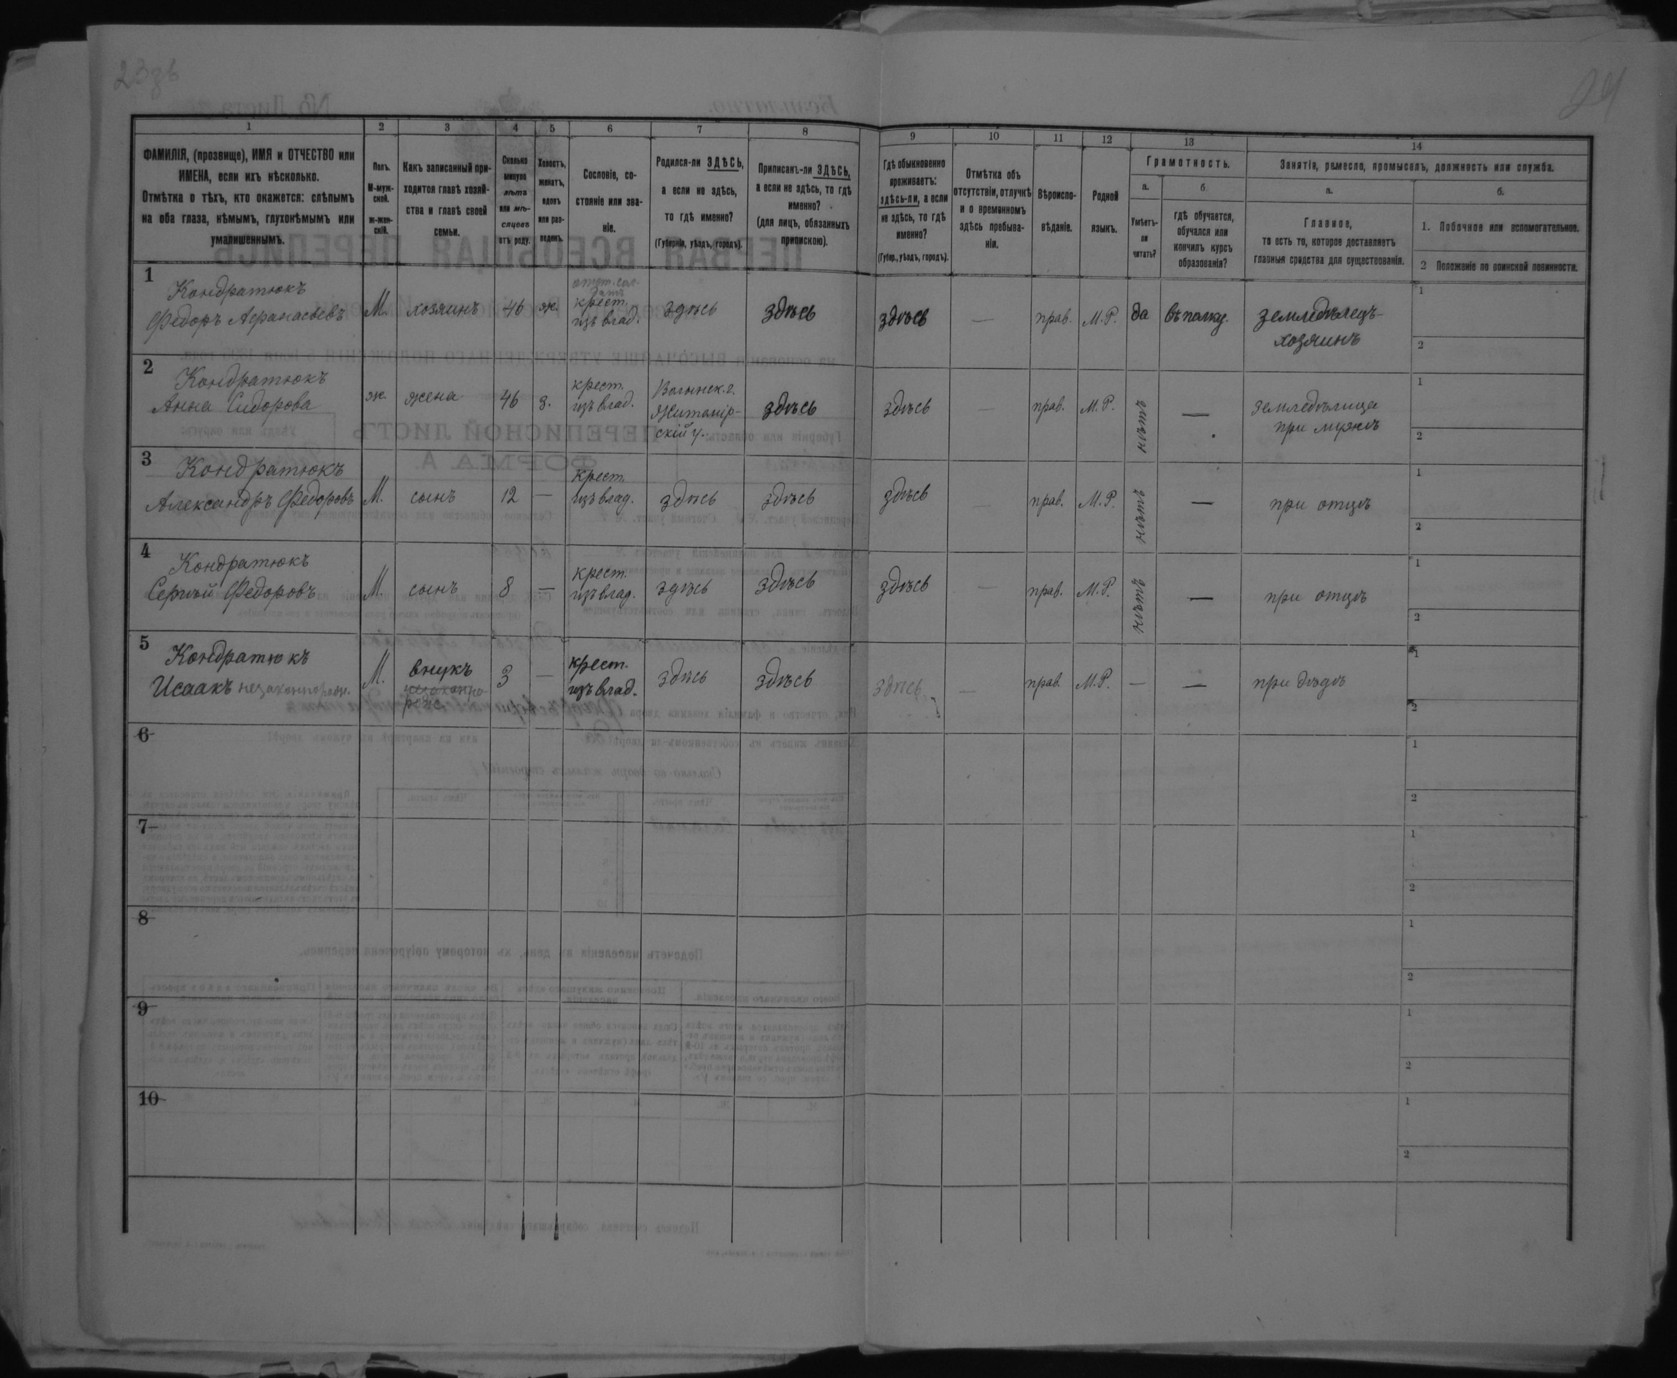 23об
24
1
2
3
4
5
6
7
8
9
10
11
12
13
14
ФАМИЛІЯ, (прозвище), ИМЯ и ОТЧЕСТВО или
ИМЕНА, если ихъ нѣсколько.
Отмѣтка о тѣхъ, кто окажется: слѣпымъ
на оба глаза, нѣмымъ, глухонѣмымъ или
умалишеннымъ.
Полъ.
М-муж-
ской.
ж-жен-
скій.
Какъ записанный при-
ходится главѣ хозяй-
ства и главѣ своей
семьи.
Сколько
минуло
лѣтъ
или мѣ-
сяцевъ
отъ роду.
Холостъ,
женатъ,
вдовъ
или раз-
веденъ.
Сословіе, со-
стояніе или зва-
ніе.
Родился-ли ЗДѢСЬ,
а если не здѣсь,
то гдѣ именно?
(Губернія, уѣздъ, городъ).
Приписанъ-ли ЗДѢСЬ,
а если не здѣсь, то гдѣ
именно?
(для лицъ, обязанныхъ
припискою).
Гдѣ обыкновенно
проживаетъ:
здѣсь-ли, а если
не здѣсь, то гдѣ
именно?
(Губер., уѣздъ, городъ).
Отмѣтка объ
отсутствіи, отлучкѣ
и о временномъ
здѣсь пребыва-
ніи.
Вѣроиспо-
вѣданіе.
Родной
языкъ.
Грамотность.
а.
Умѣетъ-
ли
читать?
б.
гдѣ обучается,
обучался или
кончилъ курсъ
образованія?
Занятія, ремесло, промыселъ, должность или служба.
а.
Главное,
то есть то, которое доставляетъ
главныя средства для существованія.
б.
1. Побочное или вспомогательное.
2 Положеніе по воинской повинности.
1
Кондратюкъ
Федоръ Афанасьевъ М. хозяинъ 46 ж. крест. изъ влад. здѣсь здѣсь здѣсь — прав. М.Р. да въ полку. земледѣлецъ-
хозяинъ
1
2
2
Кондратюкъ
Анна Сидорова ж. жена 46 з. крест. изъ влад. Волынск. г. Житомір-
скій у. здѣсь здѣсь — прав. М.Р. нѣтъ — земледѣлица
при мужѣ
1
2
3
Кондратюкъ
Александръ Федоровъ М. сынъ 12 — крест. изъ влад. здѣсь здѣсь здѣсь — прав. М.Р. нѣтъ — при отцѣ
1
2
4
Кондратюкъ
Сергѣй Федоровъ М. сынъ 8 — крест. изъ влад. здѣсь здѣсь здѣсь — прав. М.Р. нѣтъ — при отцѣ
1
2
5
Кондратюкъ
Исаакъ незаконнорожд. М. внукъ 3 — крест. изъ влад. здѣсь здѣсь здѣсь — прав. М.Р. — — при дѣдѣ
1
2
6
1
2
7
1
2
8
1
2
9
1
2
10
1
2